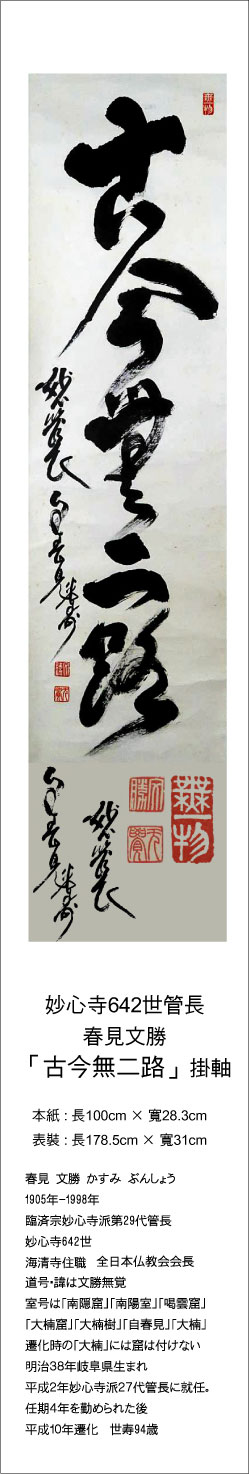 無一物
古今無二路
妙管長
無一物
妙心寺642世管長
春見文勝
「古今無二路」掛軸
本紙：長100cm × 寬28.3cm
表裝：長178.5cm × 寬31cm
春見 文勝 かすみ ぶんしょう
1905年－1998年
臨済宗妙心寺派第29代管長
妙心寺642世
海清寺住職 全日本仏教会会長
道号・諱は文勝無覚
室号は「南隠窟」「南陽室」「喝雲窟」
「大楠窟」「大楠樹」「自春見」「大楠」
遷化時の「大楠」には窟は付けない
明治38年岐阜県生まれ
平成2年妙心寺派27代管長に就任。
任期4年を勤められた後
平成10年遷化 世寿94歳